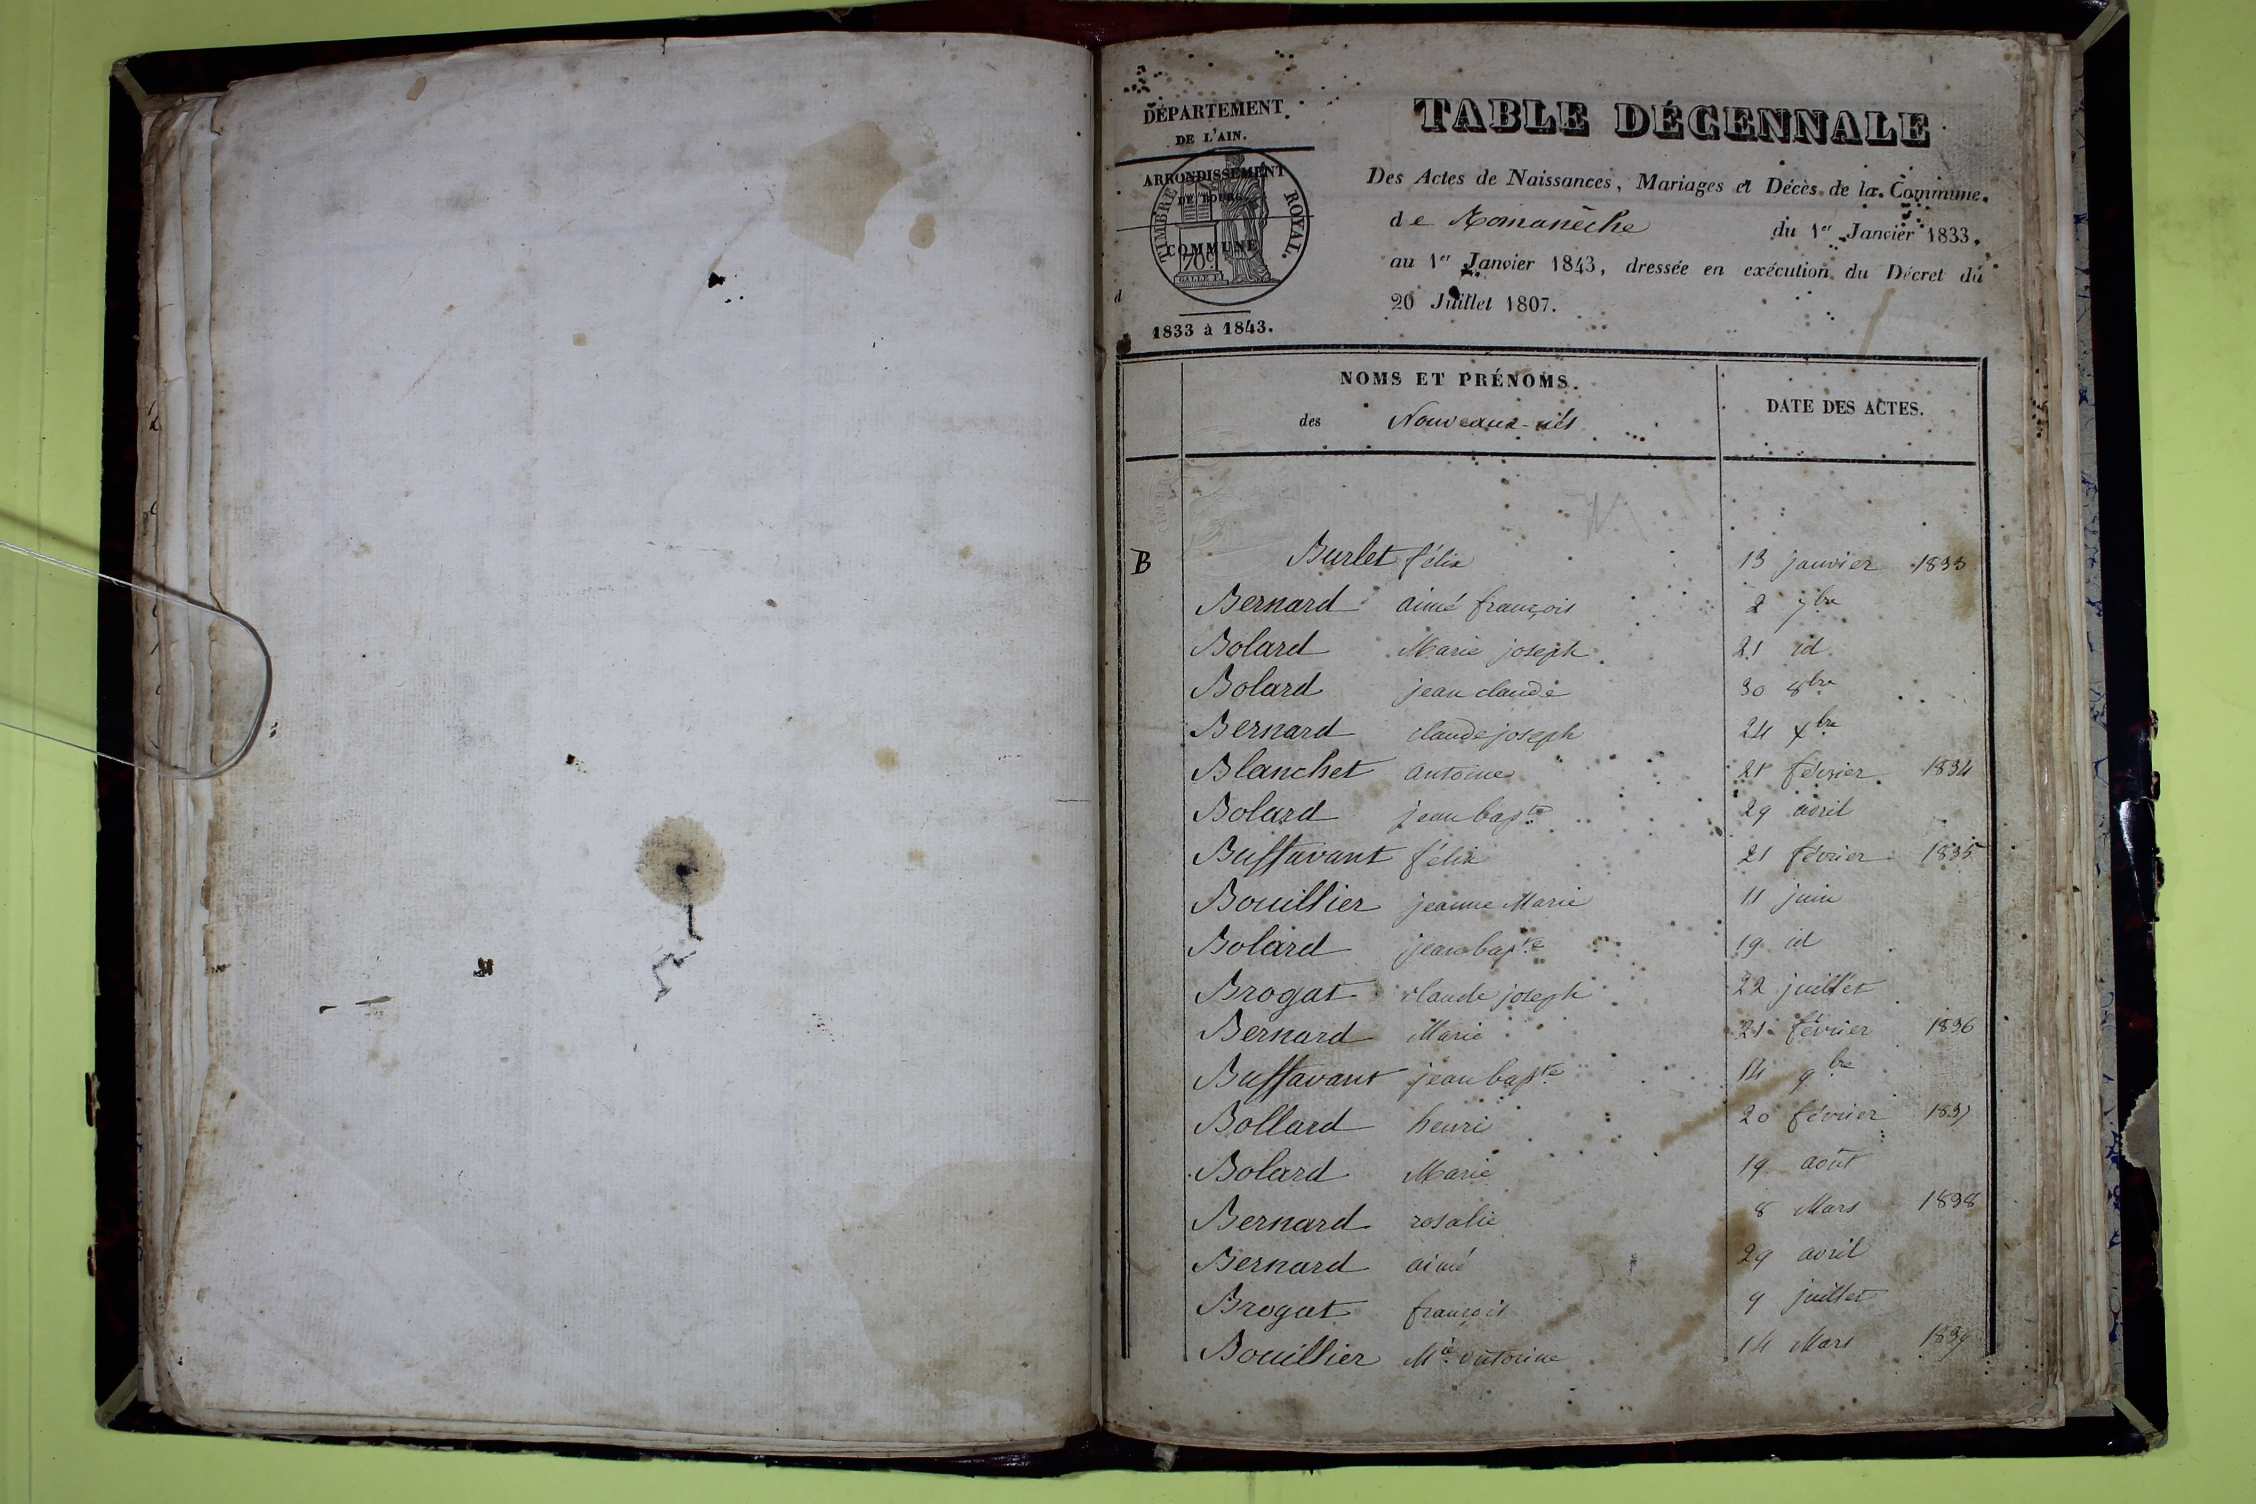 DÉPARTEMENT
DE L'AIN.
ARRONDISSEMENT
DE BOURG
COMMUNE
d
TIMBRE ROYAL.
70c
1833 à 1843.
TABLE DÉCENNALE
Des Actes de Naissances, Mariages et Décès de la Commune
de Romanèche du 1er Janvier 1833,
au 1er Janvier 1843, dressée en exécution du Décret du
20 Juillet 1807.
NOMS ET PRÉNOMS.
des Nouveaux-nés
DATE DES ACTES.
B Burlet félix 13 janvier 1833
Bernard aimé françois 2 7bre
Bolard Marie joseph 21 id
Bolard jean claude 30 8bre
Bernard claude joseph 24 xbre
Blanchet antoine 21 février 1834
Bolard jean bapte 29 avril
Buffavant félix 21 février 1835
Bouillier jeanne Marie 11 juin
Bolard jean bapte 19 id
Brogat claude joseph 22 juillet
Bernard Marie 21 février 1836
Buffavant jean bapte 14 9bre
Bollard henri 20 février 1837
Bolard Marie 19 août
Bernard rosalie 8 Mars 1838
Bernard aimé 29 avril
Brogat françois 9 juillet
Bouillier Mie antoine 14 Mars 1839